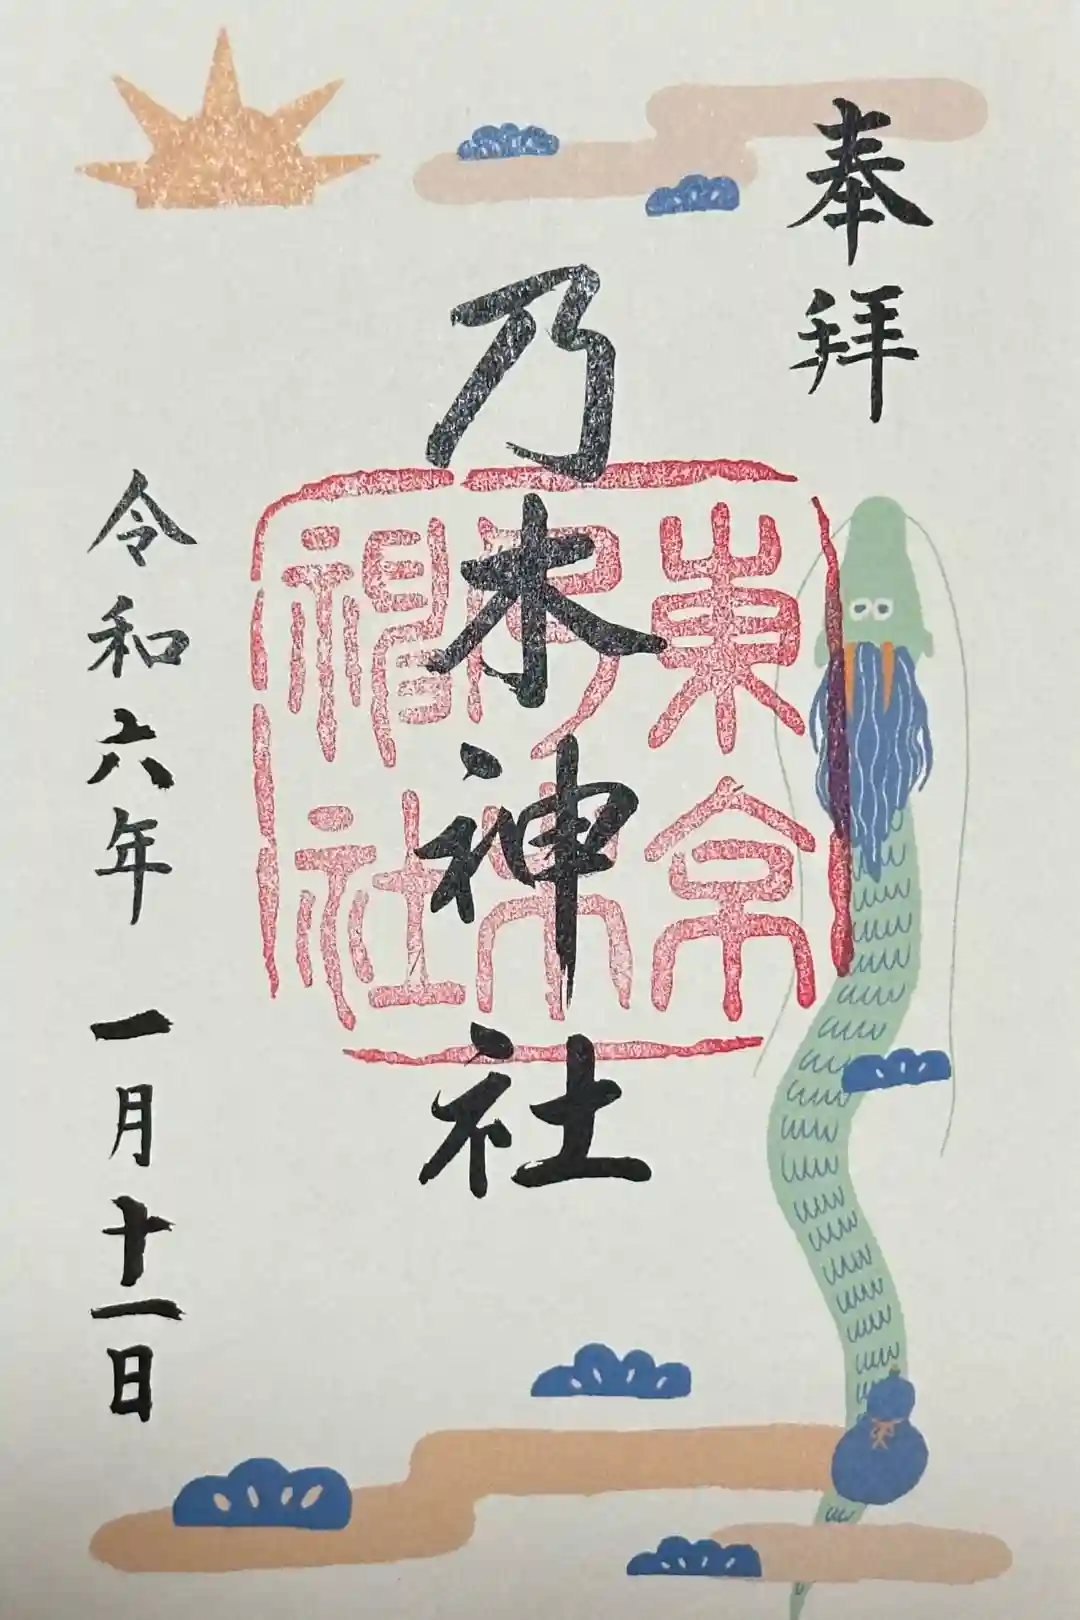 奉拝
乃木神社
東京
乃木
神社
令和六年 一月十一日